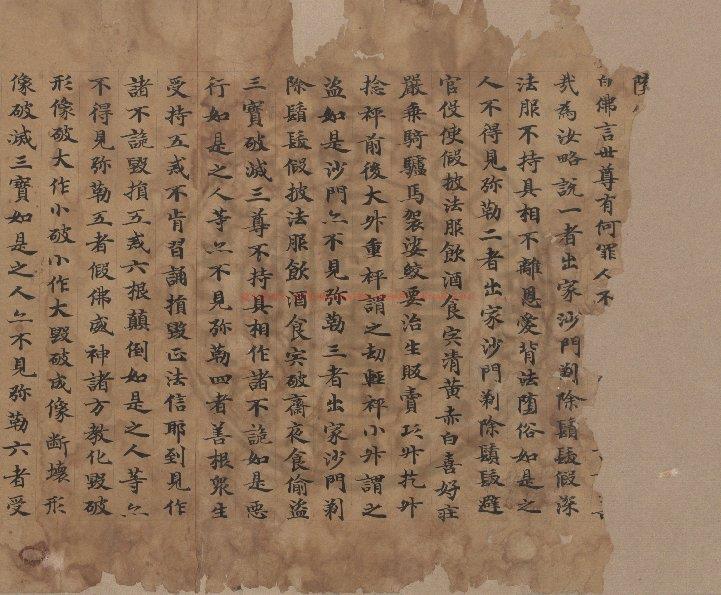 白佛言世尊有何罪人不
我為汝略說一者出家沙門剃除鬚髮假深
法服不持具相不離恩愛背法堕俗如是之
人不得見弥勒二者出家沙門剃除鬚髮避
官伇使假披法服飲酒食宍清黄赤白喜好庄
嚴乗騎驢馬袈裟絞要治生販賣
捨秤前後大升重秤謂之劫輕秤小升謂之
盗如是沙門亦不見弥勒三者出家沙門剃
除鬚髮假披法服飲酒食宍破齋夜食偷盗
三寶破滅三尊不持具相作諸不詭如是悪
行如是之人等亦不見弥勒四者善根衆生
受持五戒不肯習誦損毀正法信耶到見作
諸不詭毀損五戒六根顛倒如是之人等亦
不得見弥勒五者假佛威神諸方教化毀破
形像破大作小破小作大毀破成像断壊形
像破滅三寶如是之人亦不見弥勒六者受